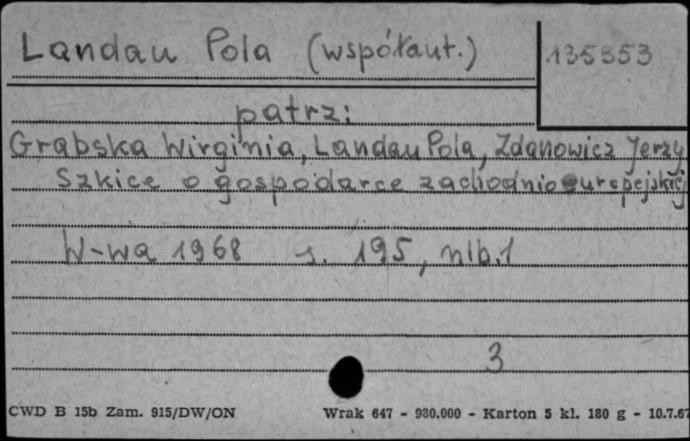 Landau Pola (współaut.)
135353
patrz:
Grabska Wirginia, Landau Pola, Zdanowicz Jerzy
Szkice o gospodarce zachodnioeuropejskiej
W-wa 1968 s. 195, nlb. 1
3
CWD B 15b Zam. 915/DW/ON Wrak 647 - 980.000 - Karton 5 kl. 180 g - 10.7.67